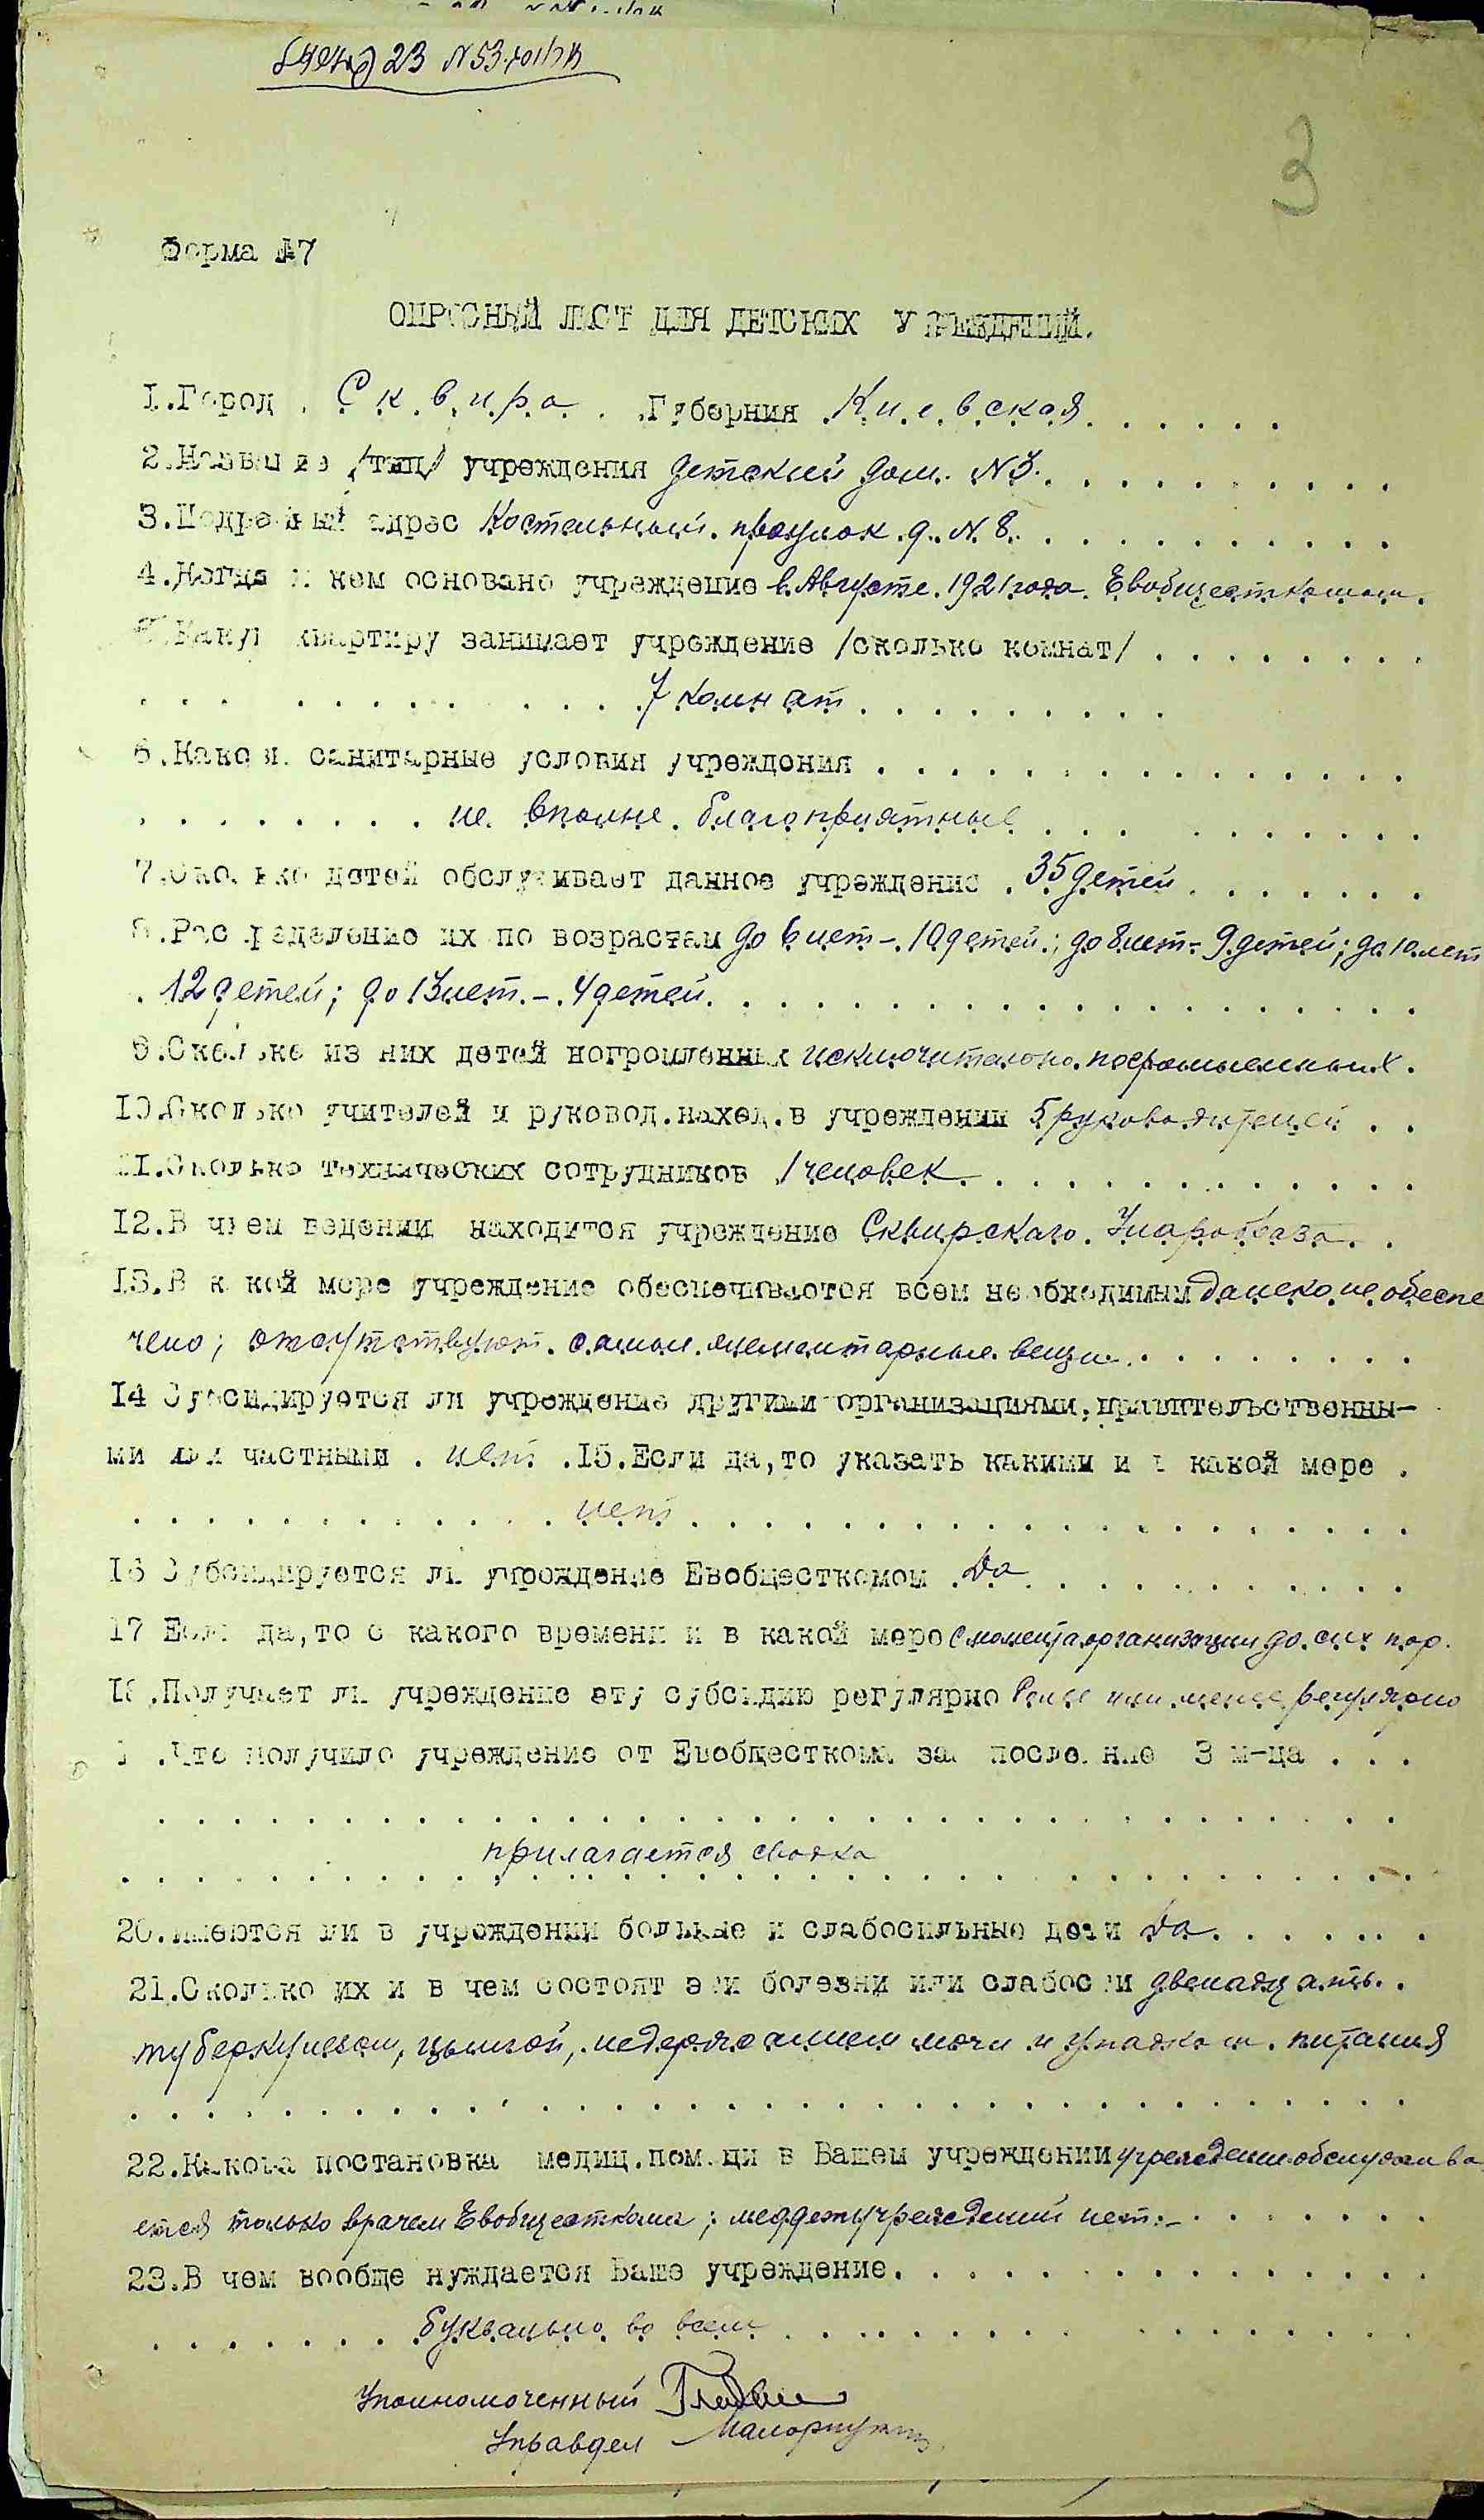 23 N 53
3
Форма №7
ОПРОСНЫЙ ЛИСТ ДЛЯ ДЕТСКИХ УЧРЕЖДЕНИЙ.
1.Город . Сквира . .Губерния .Киевская. . . . . .
2.Название /тип/ учреждения детский дом. N3. . . . . . . . . .
3.Подробный адрес Костельный. проулок. д. N. 8. . . . . . . . . . .
4.Когда и кем основано учреждение в Августе. 1921 года. Евобщесткомом.
5.Какую квартиру занимает учреждение /сколько комнат/ . . . . . . . .
7 комнат. . . . . . . . .
6.Каковы санитарные условия учреждения . . . . . . . . . . . . . . .
не вполне. благоприятные . . . . . . . . . .
7.Сколько детей обслуживает данное учреждение . 35 детей. . . . . . .
8.Распределение их по возрастам до 6 лет-. 10 детей.; до 8 лет- 9 детей; до 10 лет
. 12 детей; до 13 лет. -. 4 детей. . . . . . . . . . . . . . . . . . . .
9.Сколько из них детей погромленных исключительно погромленных.
10.Сколько учителей и руковод.наход.в учреждении 5 руководителей . .
11.Сколько технических сотрудников 1 человек. . . . . . . . . . . . .
12.В чьем ведении находится учреждение Сквирскаго. Унаробраза. .
13.В какой мере учреждение обеспечивается всем необходимым далеко не обеспе
чено; отсутствуют. самые. элементарные. вещи. . . . . . . . .
14 Субсидируется ли учреждение другими организациями,правительственны-
ми или частными . нет .15.Если да,то указать какими и в какой мере .
. . . . . . . . . . . . нет . . . . . . . . . . . . . . . . . . . .
16 Субсидируется ли учреждение Евобщесткомом . да. . . . . . . . . . .
17 Если да,то с какого времени и в какой мере с момента организации до. сих пор.
18.Получает ли учреждение эту субсидию регулярно более или менее регулярно
19.Что получило учреждение от Евобщесткома за последние 3 м-ца . . .
. . . . . . . . . . . . . . . . . . . . . . . . . . . . . . . . . .
прилагается сводка
20.Имеются ли в учреждении больные и слабосильные дети да. . . . . .
21.Сколько их и в чем состоят эти болезни или слабости двенадцать. .
туберкулезом, цынгой, недержанием мочи и упадком. питания
. . . . . . . . . . . . . . . . . . . . . . . . . . . . . . . . . . .
22.Какова постановка медиц.помощи в Вашем учреждении учреждение обслужива
ется только врачем Евобщесткома; меддетучреждений нет.- . . . . . . .
23.В чем вообще нуждается Ваше учреждение. . . . . . . . . . . . . . .
. . . . . . . буквально во всем . . . . . . . . . . . . . . . . .
Уполномоченный
Управдел